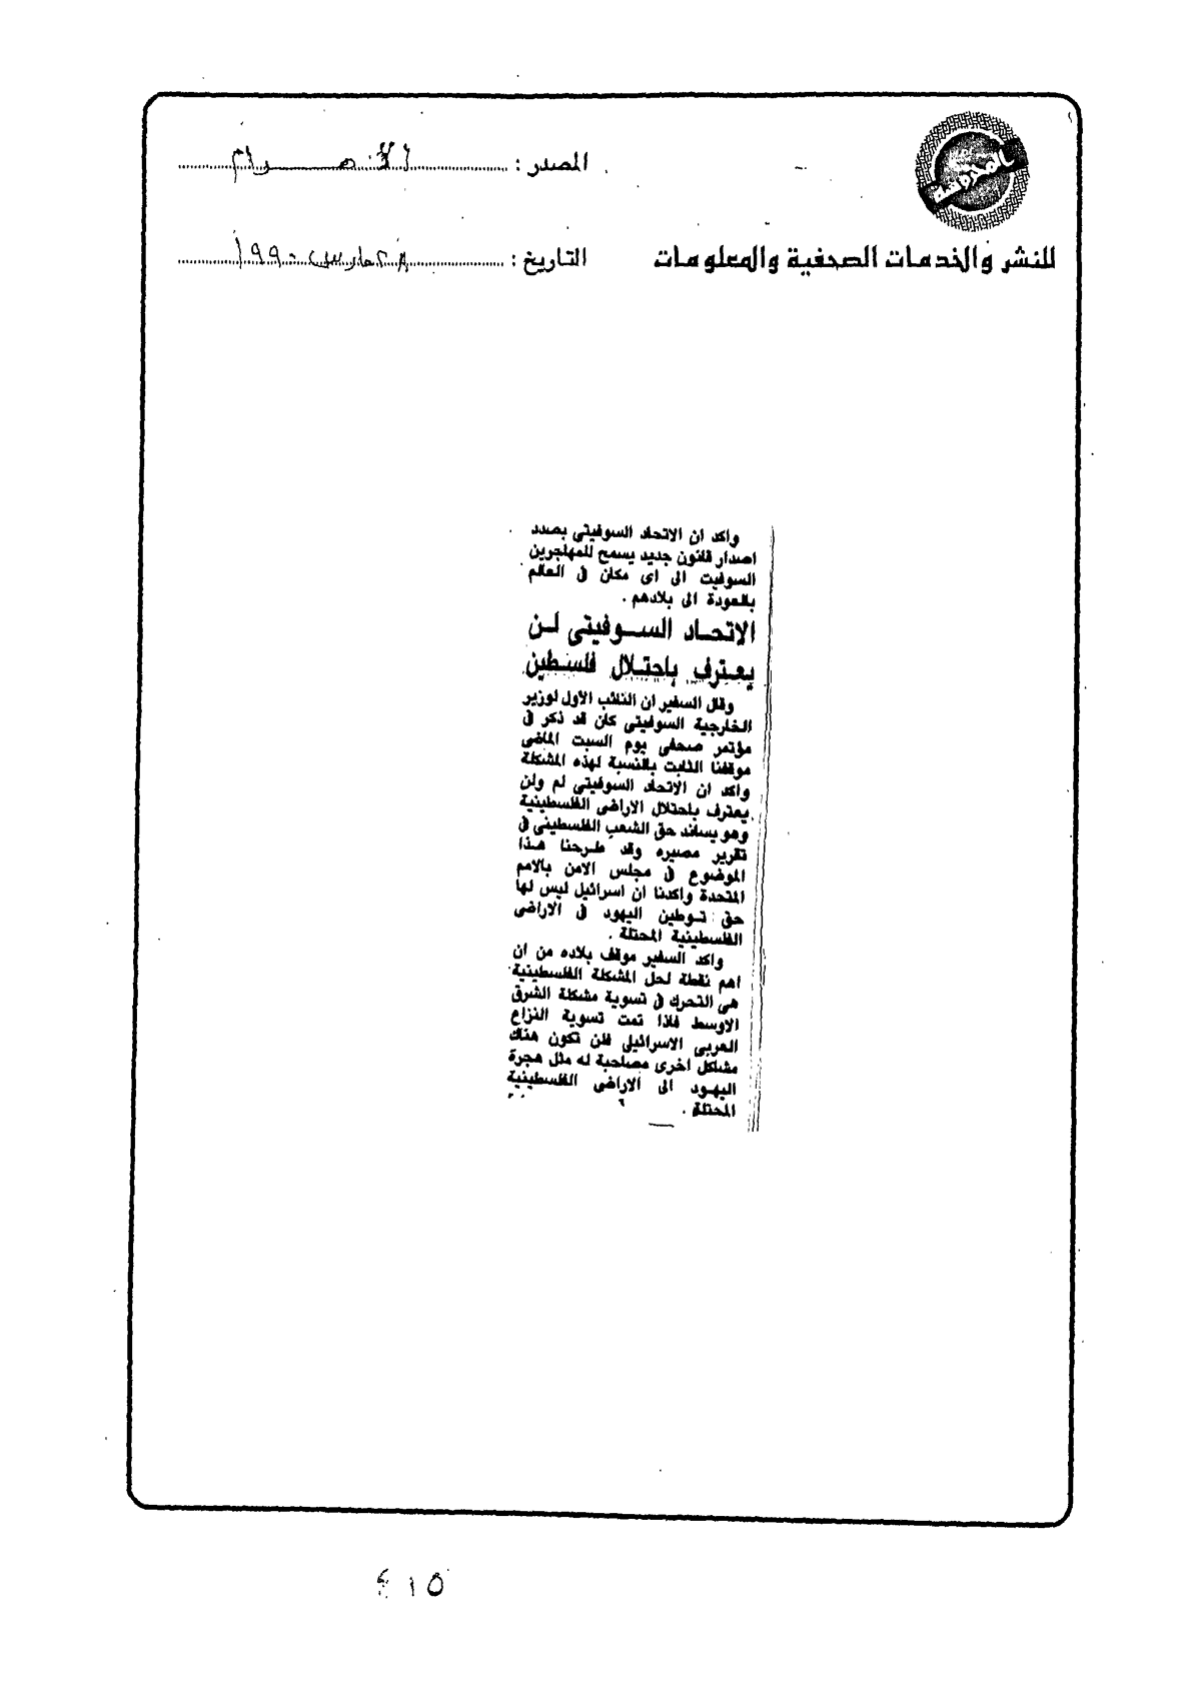 المحروسة
المصدر : الأهرام
للنشر والخدمات الصحفية والمعلومات
التاريخ : ٢٨ مارس ١٩٩٠
واكد ان الاتحاد السوفيتى بصدد
اصدار قانون جديد يسمح للمهاجرين
السوفيت الى اى مكان فى العالم
بالعودة الى بلادهم .
الاتحاد السوفيتى لن
يعترف باحتلال فلسطين
وقال السفير ان النائب الاول لوزير
الخارجية السوفيتى كان قد ذكر فى
مؤتمر صحفى يوم السبت الماضى
موقفنا الثابت بالنسبة لهذه المشكلة
واكد ان الاتحاد السوفيتى لم ولن
يعترف باحتلال الاراضى الفلسطينية
وهو يساند حق الشعب الفلسطينى فى
تقرير مصيره وقد طرحنا هذا
الموضوع فى مجلس الامن بالامم
المتحدة واكدنا ان اسرائيل ليس لها
حق توطين اليهود فى الاراضى
الفلسطينية المحتلة .
واكد السفير موقف بلاده من ان
اهم نقطة لحل المشكلة الفلسطينية
هى التحرك فى تسوية مشكلة الشرق
الاوسط فاذا تمت تسوية النزاع
العربى الاسرائيلى فلن تكون هناك
مشاكل اخرى مصاحبة له مثل هجرة
اليهود الى الاراضى الفلسطينية
المحتلة .